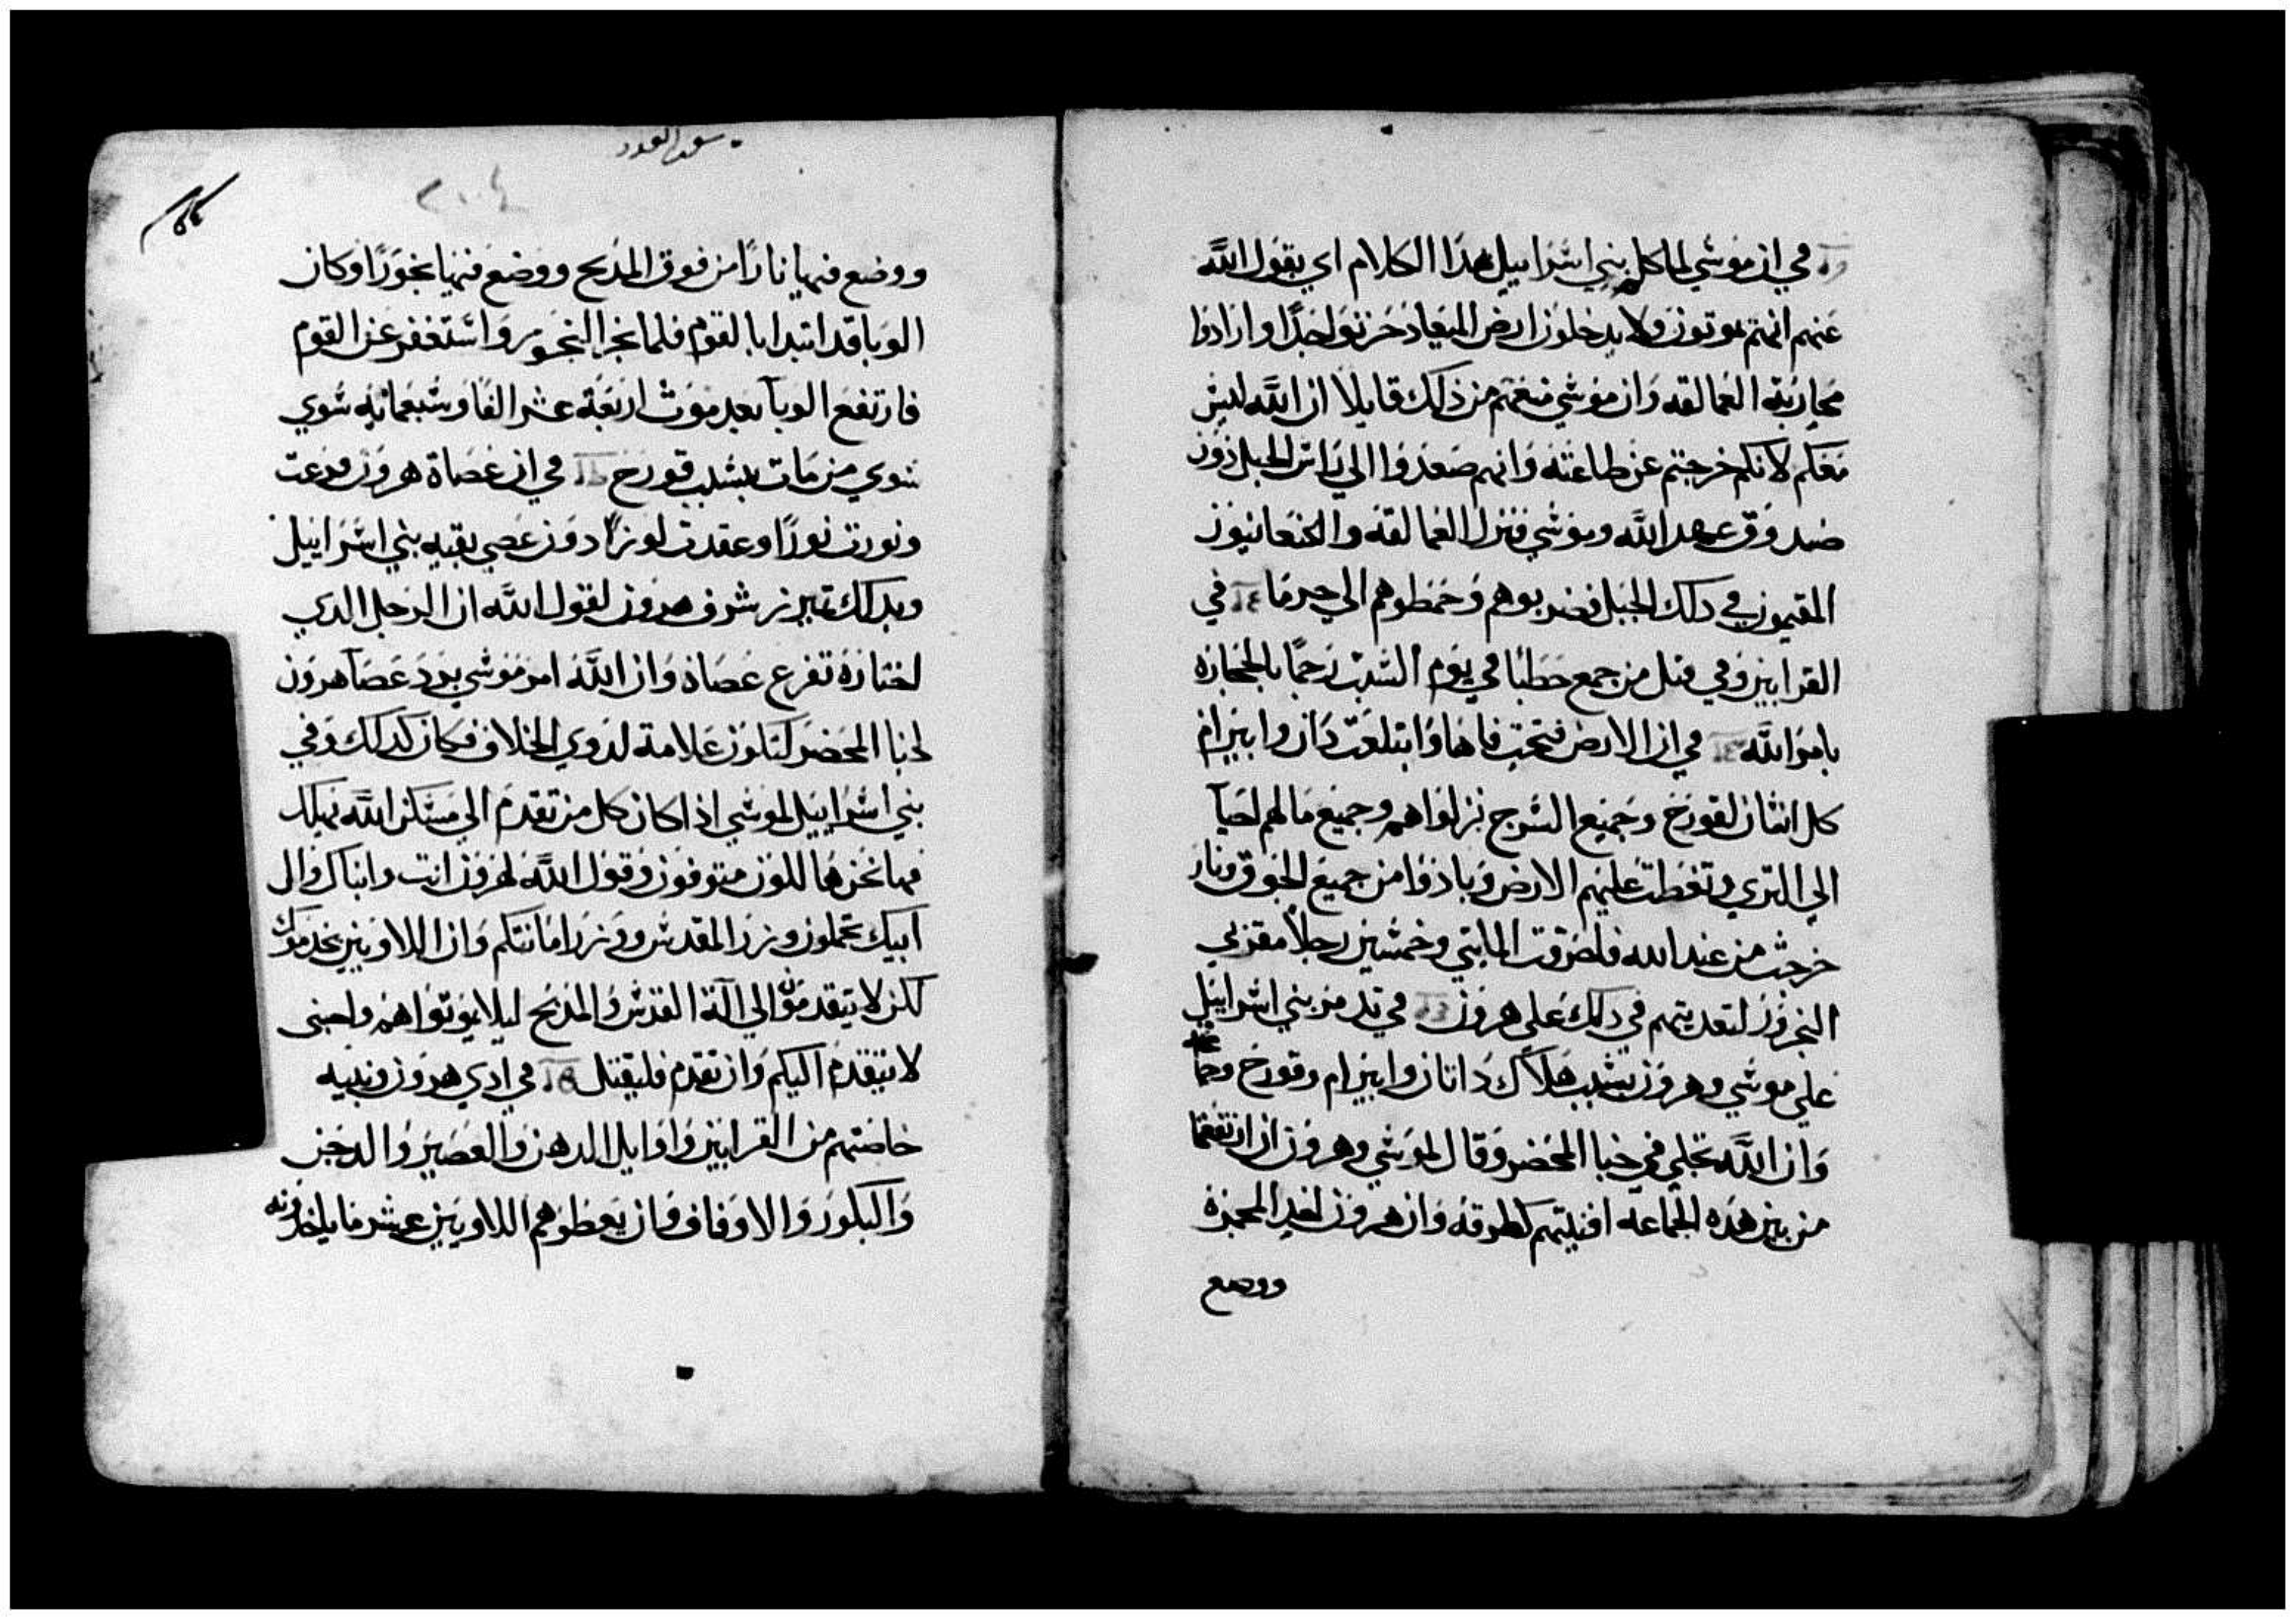 في ان موسي لما كلم بني اسراييل هدا الكلام اي بقول الله
عنهم انهم يموتون ولا يدخلون ارض الميعاد حزنوا جدا وارادوا
محاربة العمالقه وان موسي منعهم من ذلك قايلا ان الله ليس
معكم لانكم خرجتم عن طاعته وانهم صعدوا الي راس الجبل دون
صندوق عهد الله وموسي فنزل العمالقه والكنعانيون
المقيمون في دلك الجبل فضربوهم وحمطوهم الي حرما في
القرابين وفي قتل من جمع حطبا في يوم السبت رجما بالحجاره
بامر الله في ان الارض فتحت فاها وابتلعت داتان وابيرام
كل انسان لقورح وجميع السرج نزلوا هم وجميع مالهم احيآ
الي الثري وتغطت عليهم الارض وبادوا من جميع الجوق ونار
خرجت من عند الله فاحرقت المايتي وخمسين رجلا مقربي
البخور لتعديتهم في دلك علي هرون في تدمر بني اسراييل
علي موسي وهرون بسبب هلاك داتان وابيرام وقورح وجماعته
وان الله تجلي في خبا المحضر وقال لموسي وهرون ان ارتفعتما
من بين هده الجماعه افنيتهم كطرفه وان هرون اخد المجمرة
ووضع
سفر العدد
ووضع فيها نارا من فوق المدبح ووضع فيها بخورا وكان
الوبا قد ابتدا بالقوم فلما بخر البخور واستغفر عن القوم
فارتفع الوبآ بعد موت اربعة عشر الفا وسبعمايه سوي
سوي من مات بسبب قورح في ان عصاة هرون فرعت
ونورت نورا وعقدت لوزا دون عصي بقيه بني اسراييل
وبدلك تبرز شرف هرون لقول الله ان الرجل الدي
اختاره تفرع عصاه وان الله امر موسي برد عصآ هرون
لخبا المحضر لتكون علامة لدوي الخلاف فكان كدلك وفي
بني اسراييل لموسي اذا كان كل من تقدم الي مسكن الله يهلك
فها نحن هالكون متوفون وقول الله لهرون انت وابناك وال
ابيك تحملون وزر المقدس ووزر امانتكم وان اللاويين يخدموك
لكن لا يتقدمون الي آلة القدس والمدبح ليلا يموتوا هم واجنبي
لا يتقدم اليكم وان تقدم فليقتل في ادي هرون وبنيه
خاصتهم من القرابين واوايل الدهن والعصير والدجن
والبكور والاوقاف وان يعطوهم اللاويين عشر ما ياخدونه